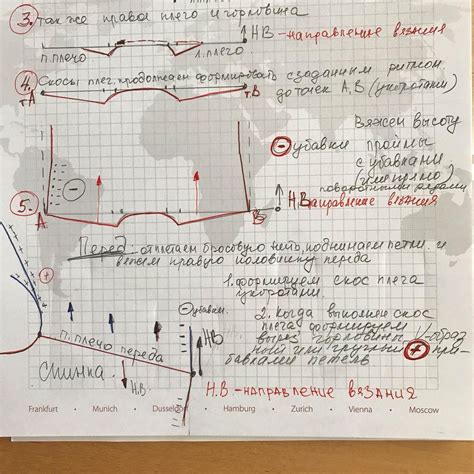 3. так же права плечо и горловина
НВ - направление вязания
п. плечо л. плечо
4. Скосы плеч, продолжаем формировать с заданным ритмом
до точек А, В (укоротами)
т.А т.В
Вяжем высоту
⊖ убавки проймы
с убавками
поворотными рядами
5. А В Н.В направление вязания
Перед: отплетаем бросовую нить, поднимаем петли и
вяжем правую половинку переда
1. формируем скос плеча
укоротами.
⊖ убавки.
2. Когда выполнен скос
плеча формируем
вырез горловины V-образ
ный или круглый ⊕ при
бавками петель
п. плечо переда
НВ
Спинка. Н.В.
Н.В - направление вязания
Frankfurt • Munich • Dusseldorf • Hamburg • Zurich • Vienna • Moscow